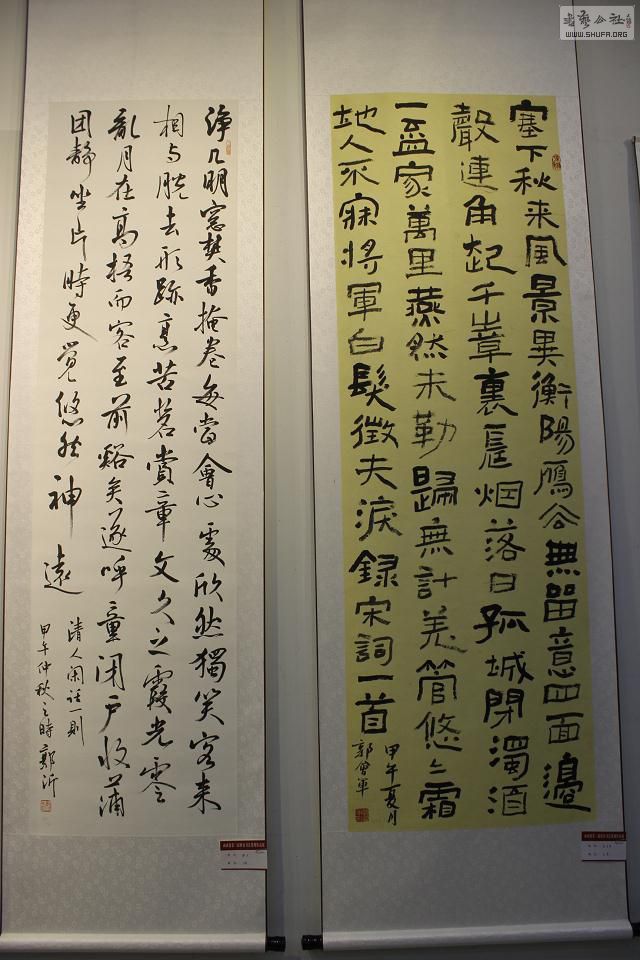 塞下秋来風景異衡陽鴈去無留意四面邊
聲連角起千嶂裏長烟落日孤城閉濁酒
一盃家萬里燕然未勒歸無計羌管悠々霜
地人不寐將軍白髮徵夫淚錄宋詞一首
甲午夏月
郭曾軍
淨几明窓焚香掩卷每當會心處欣然獨笑客来
相与脱去形跡烹苦茗賞章文久之霞光零
亂月在高梧而客至前谿矣遂呼童闭户收蒲
团靜坐片時更覺悠然神遠
清人闲话一则
甲午仲秋之時鄭沂
书艺公社
WWW.SHUFA.ORG